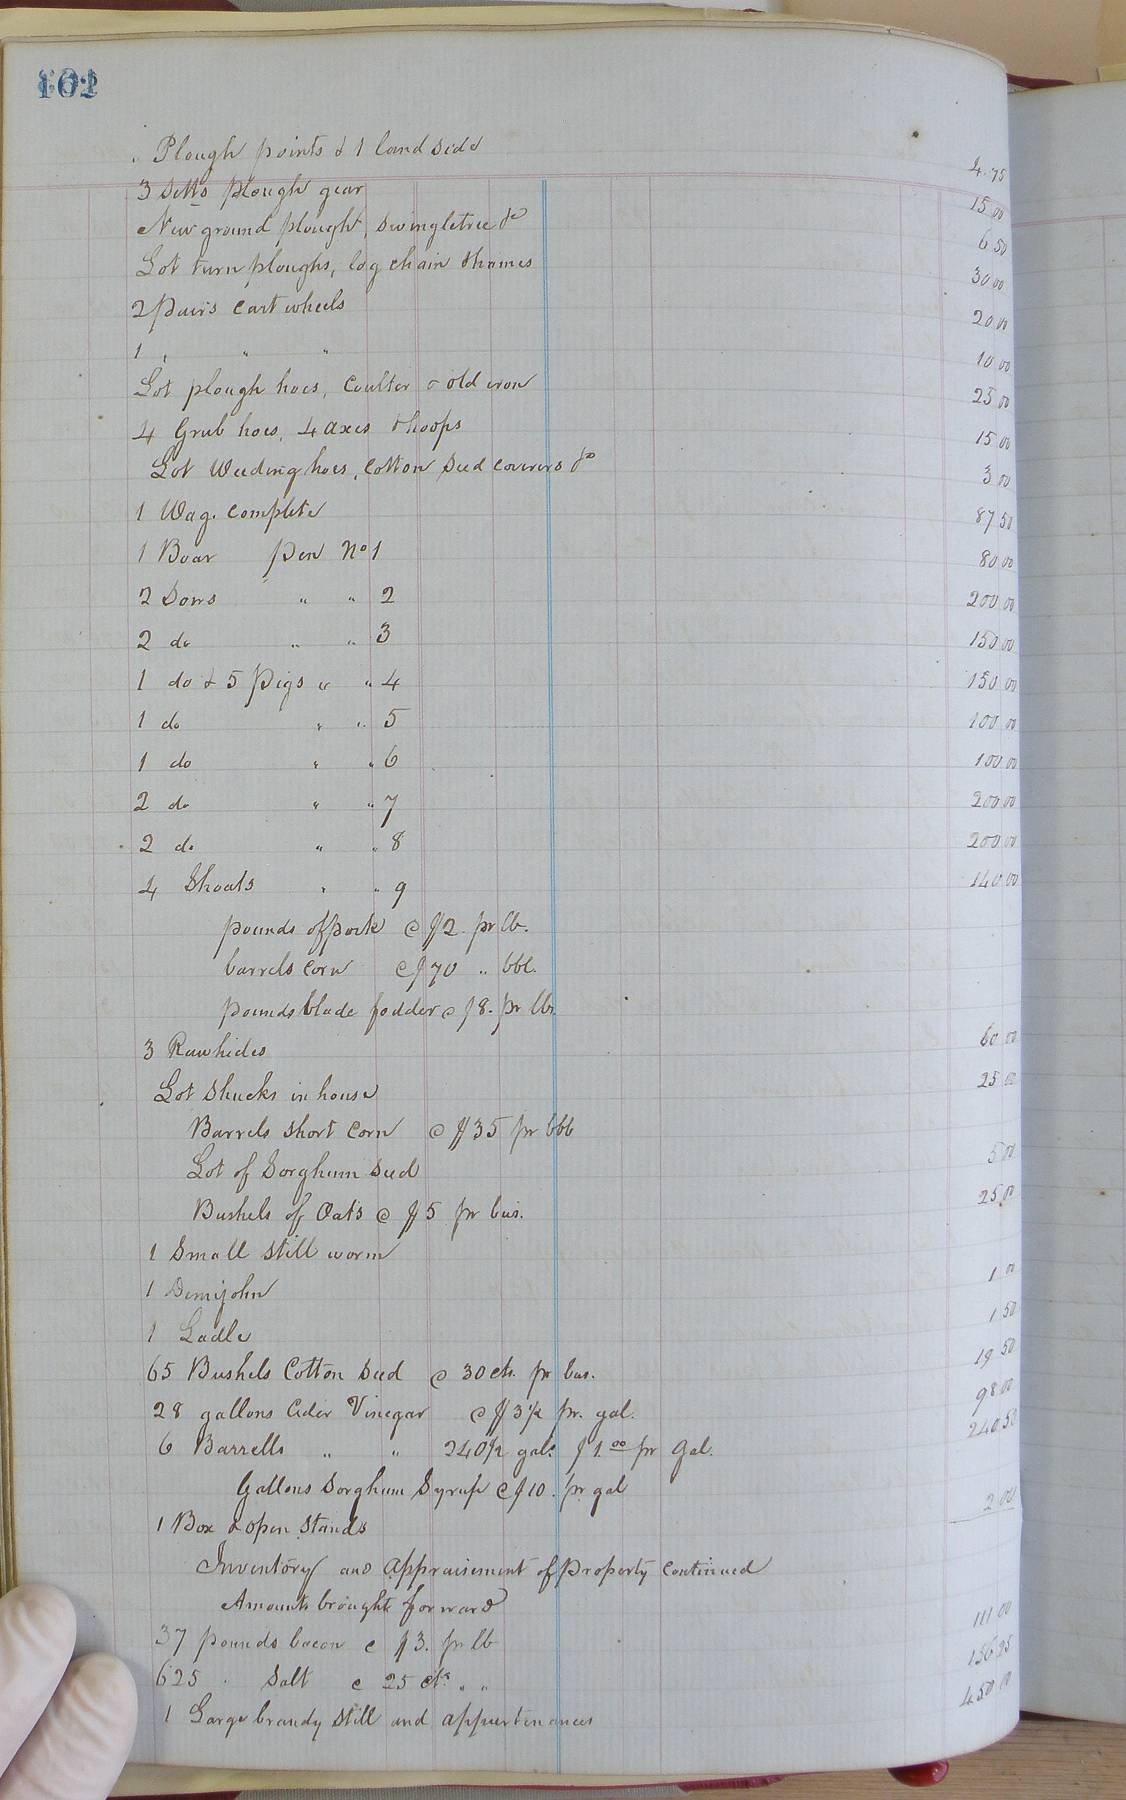 162
" Plough points & 1 land side 4.75
3 Setts plough gear 15 00
New ground plough, swingletree &c 6 50
Lot turn ploughs, log chain & hames 30 00
2 Pairs cart wheels 20 00
1 " " " 10 00
Lot plough hoes, Coulter & old iron 25 00
4 Grub hoes, 4 axes & hoops 15 00
Lot Weeding hoes, cotton seed coverers &c 3 00
1 Wag. complete 87 50
1 Boar pen No 1 80 00
2 Sows " " 2 200 00
2 do " " 3 150 00
1 do & 5 Pigs " " 4 150 00
1 do " " 5 100 00
1 do " " 6 100 00
2 do " " 7 200 00
2 do " " 8 200 00
4 Shoats " " 9 140 00
pounds of pork @ $2 pr lb.
barrels corn @ $70 " bbl.
pounds blade fodder @ $8. pr lbs
3 Rawhides 60 00
Lot shucks in house 25 00
Barrels short corn @ $35 pr bbb
Lot of Sorghum Seed 5 00
Bushels of Oats @ $5 pr bus.
1 Small still worm 25 00
1 Demijohn 1 00
1 Ladle 1 50
65 Bushels Cotton seed @ 30 cts. pr bus. 19 50
28 gallons Cider Vinegar @ $3½ pr. gal. 98 00
6 Barrells " " 240½ gals $1.00 pr Gal. 240.50
Gallons Sorghum Syrup @ $10. pr gal
1 Box & open stands 2 00
Inventory and Appraisement of Property continued
Amounts brought forward
37 pounds bacon @ $3. pr lb 111 00
625 " Salt @ 25 cts " " 156 25
1 Large brandy still and appurtenances 450 00